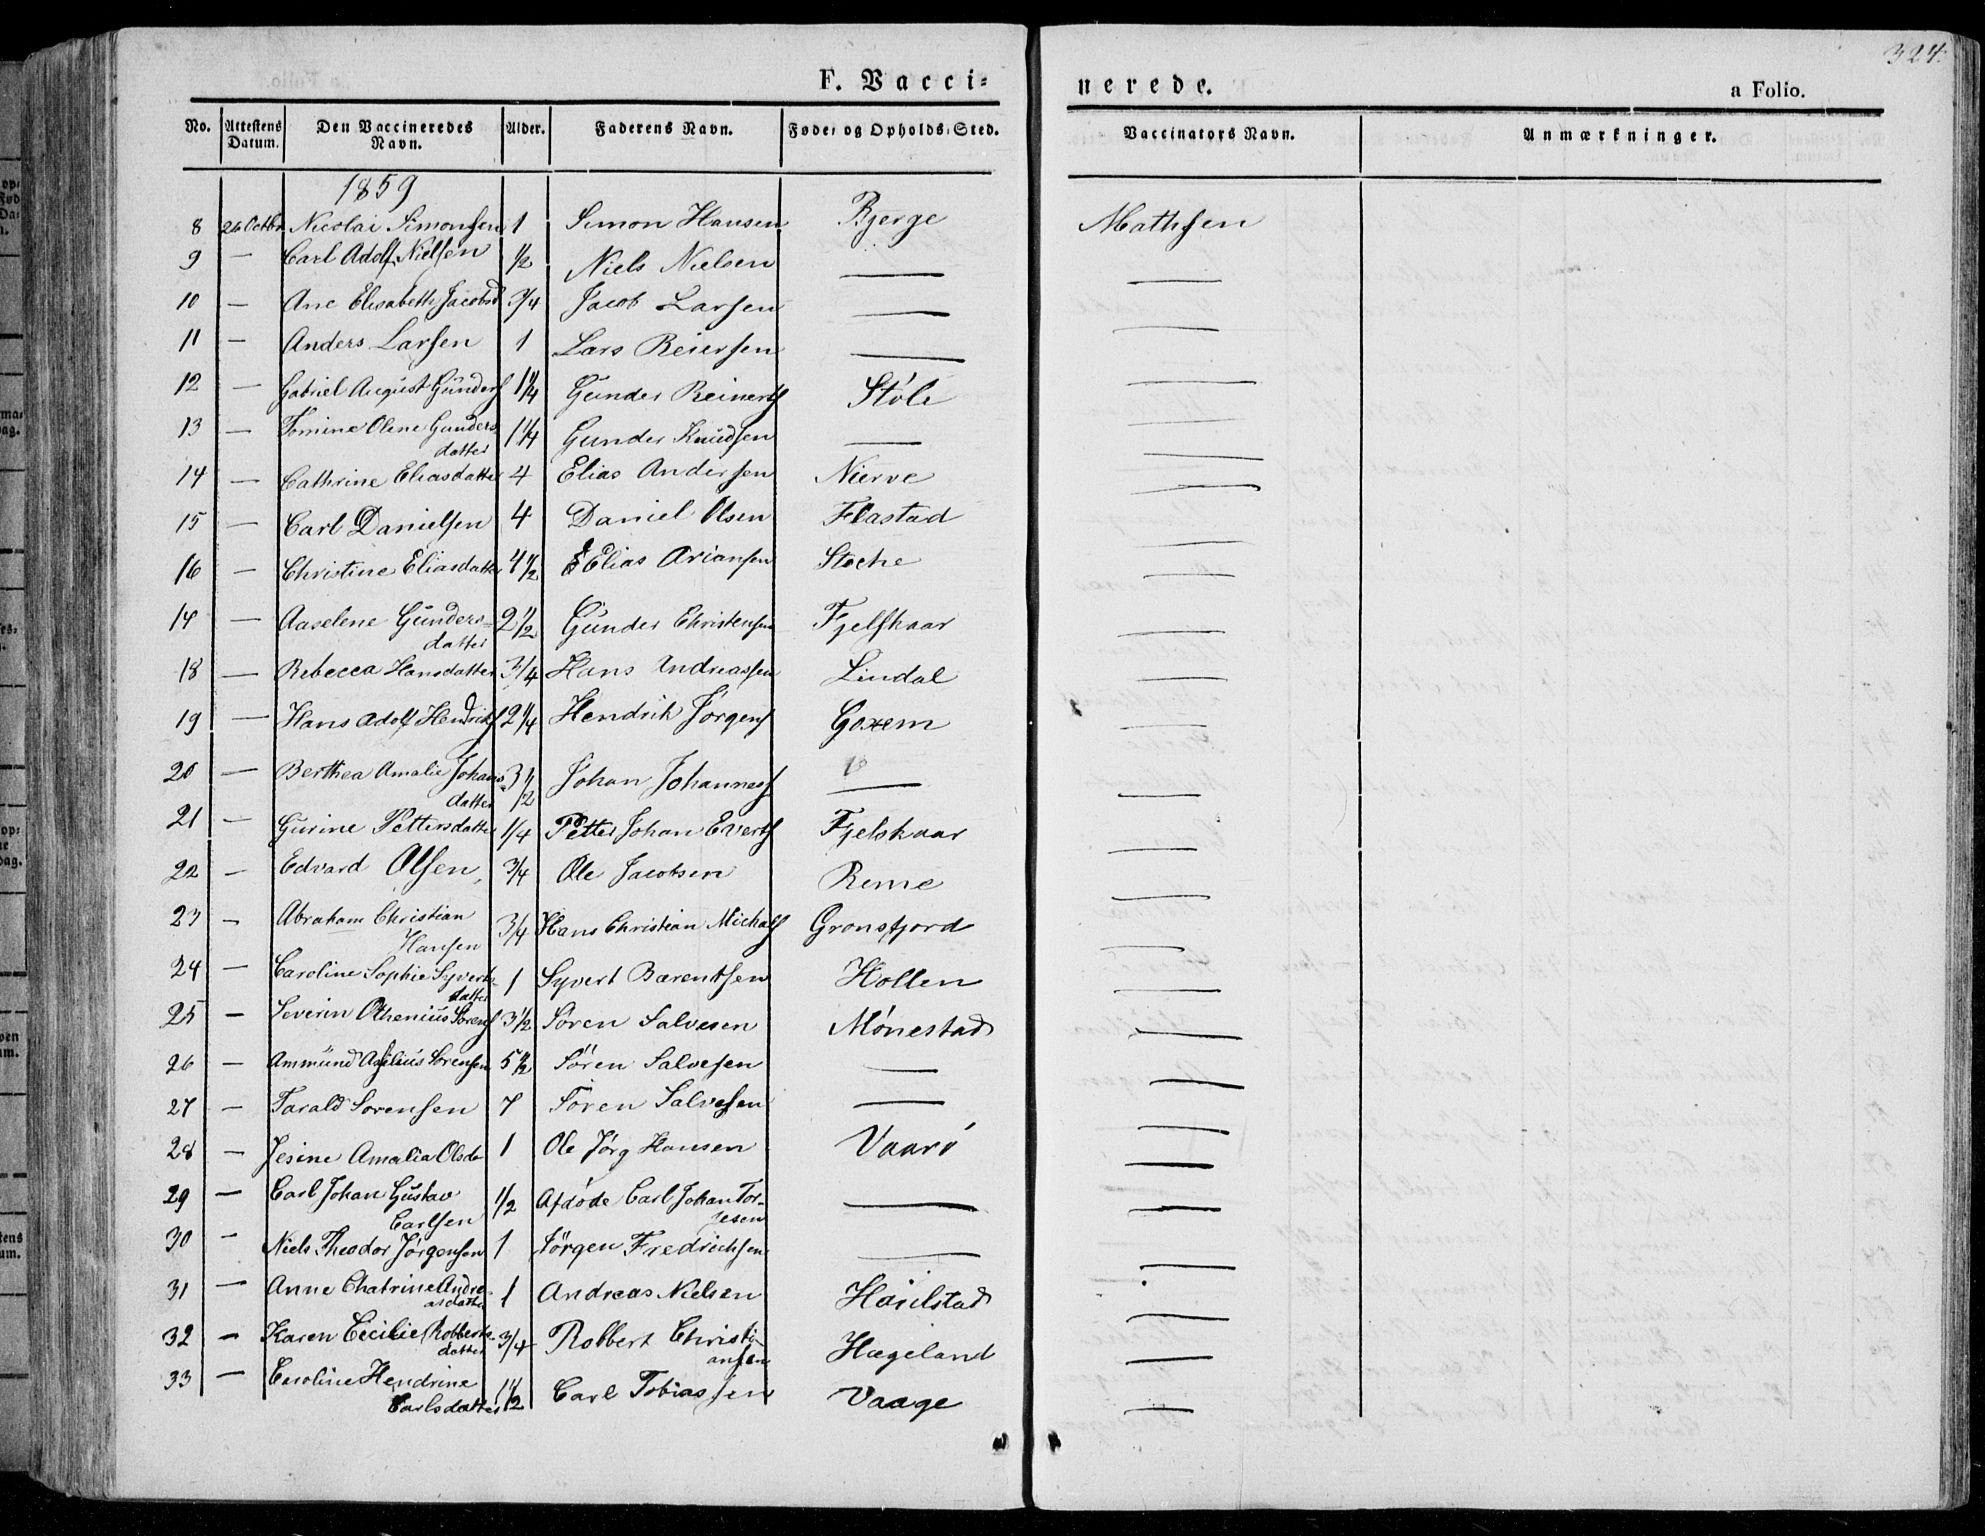 324.
F. Vacci=
nerede.
a Folio.
No. Attestens Datum. Den Vaccineredes Navn. Alder. Faderens Navn. Føde- og Opholds-Sted. Vaccinators Navn. Anmærkninger.
1859
8 26 Octbr Nicolai Simonsen 1 Simon Hansen Bjerge Mathsen
9 — Carl Adolf Nielsen 1/2 Niels Nielsen — —
10 — Ane Elisabeth Jacobsd 3/4 Jacob Larsen — —
11 — Anders Larsen 1 Lars Reiersen — —
12 — Gabriel August Gunders 1 1/4 Gunder Reiners Støle —
13 — Tomine Olene Gunders
datter 1 1/4 Gunder Knudsen — —
14 — Cathrine Eliasdatter 4 Elias Andersen Nierve —
15 — Carl Danielsen 4 Daniel Olsen Flastad —
16 — Christine Eliasdatter 4 1/2 Elias Ariansen Stoche —
17 — Aaselene Gunders-
datter 2 1/2 Gunder Christensen Fjelskaar —
18 — Rebecca Hansdatter 3/4 Hans Andreassen Lindal —
19 — Hans Adolf Hendriks 2 1/4 Hendrik Jørgens Goxem —
20 — Berthea Amalie Johans
datter 3 1/2 Johan Johannes — —
21 — Gurine Pettersdatter 1/4 Petter Johan Everts Fjelskaar —
22 — Edvard Olsen 3/4 Ole Jacobsen Reme —
23 — Abraham Christian
Hansen 3/4 Hans Christian Michals Gronsfjord —
24 — Caroline Sophie Syverts-
datter 1 Syvert Bærentsen Hollen —
25 — Severin Othenius Sørens 3 1/2 Sören Salvesen Mönestad —
26 — Ammund Aselius Sørensen 5 1/2 Sören Salvesen — —
27 — Tarald Sørensen 7 Sören Salvesen — —
28 — Jesine Amalia Olsda 1 Ole Jørg Hansen Vaarø —
29 — Carl Johan Gustav
Carlsen 1/2 Afdøde Carl Johan Tor-
jesen — —
30 — Niels Theodor Jørgensen 1 Jörgen Fredrichsen — —
31 — Anne Chatrine Andre-
asdatter 1 Andreas Nielsen Haaelstad —
32 — Karen Cecilie Robberts-
datter 3/4 Robbert Christi-
ansen Hægeland —
33 — Caroline Hendrine
Carlsdatter 1 1/2 Carl Tobiassen Vaage —